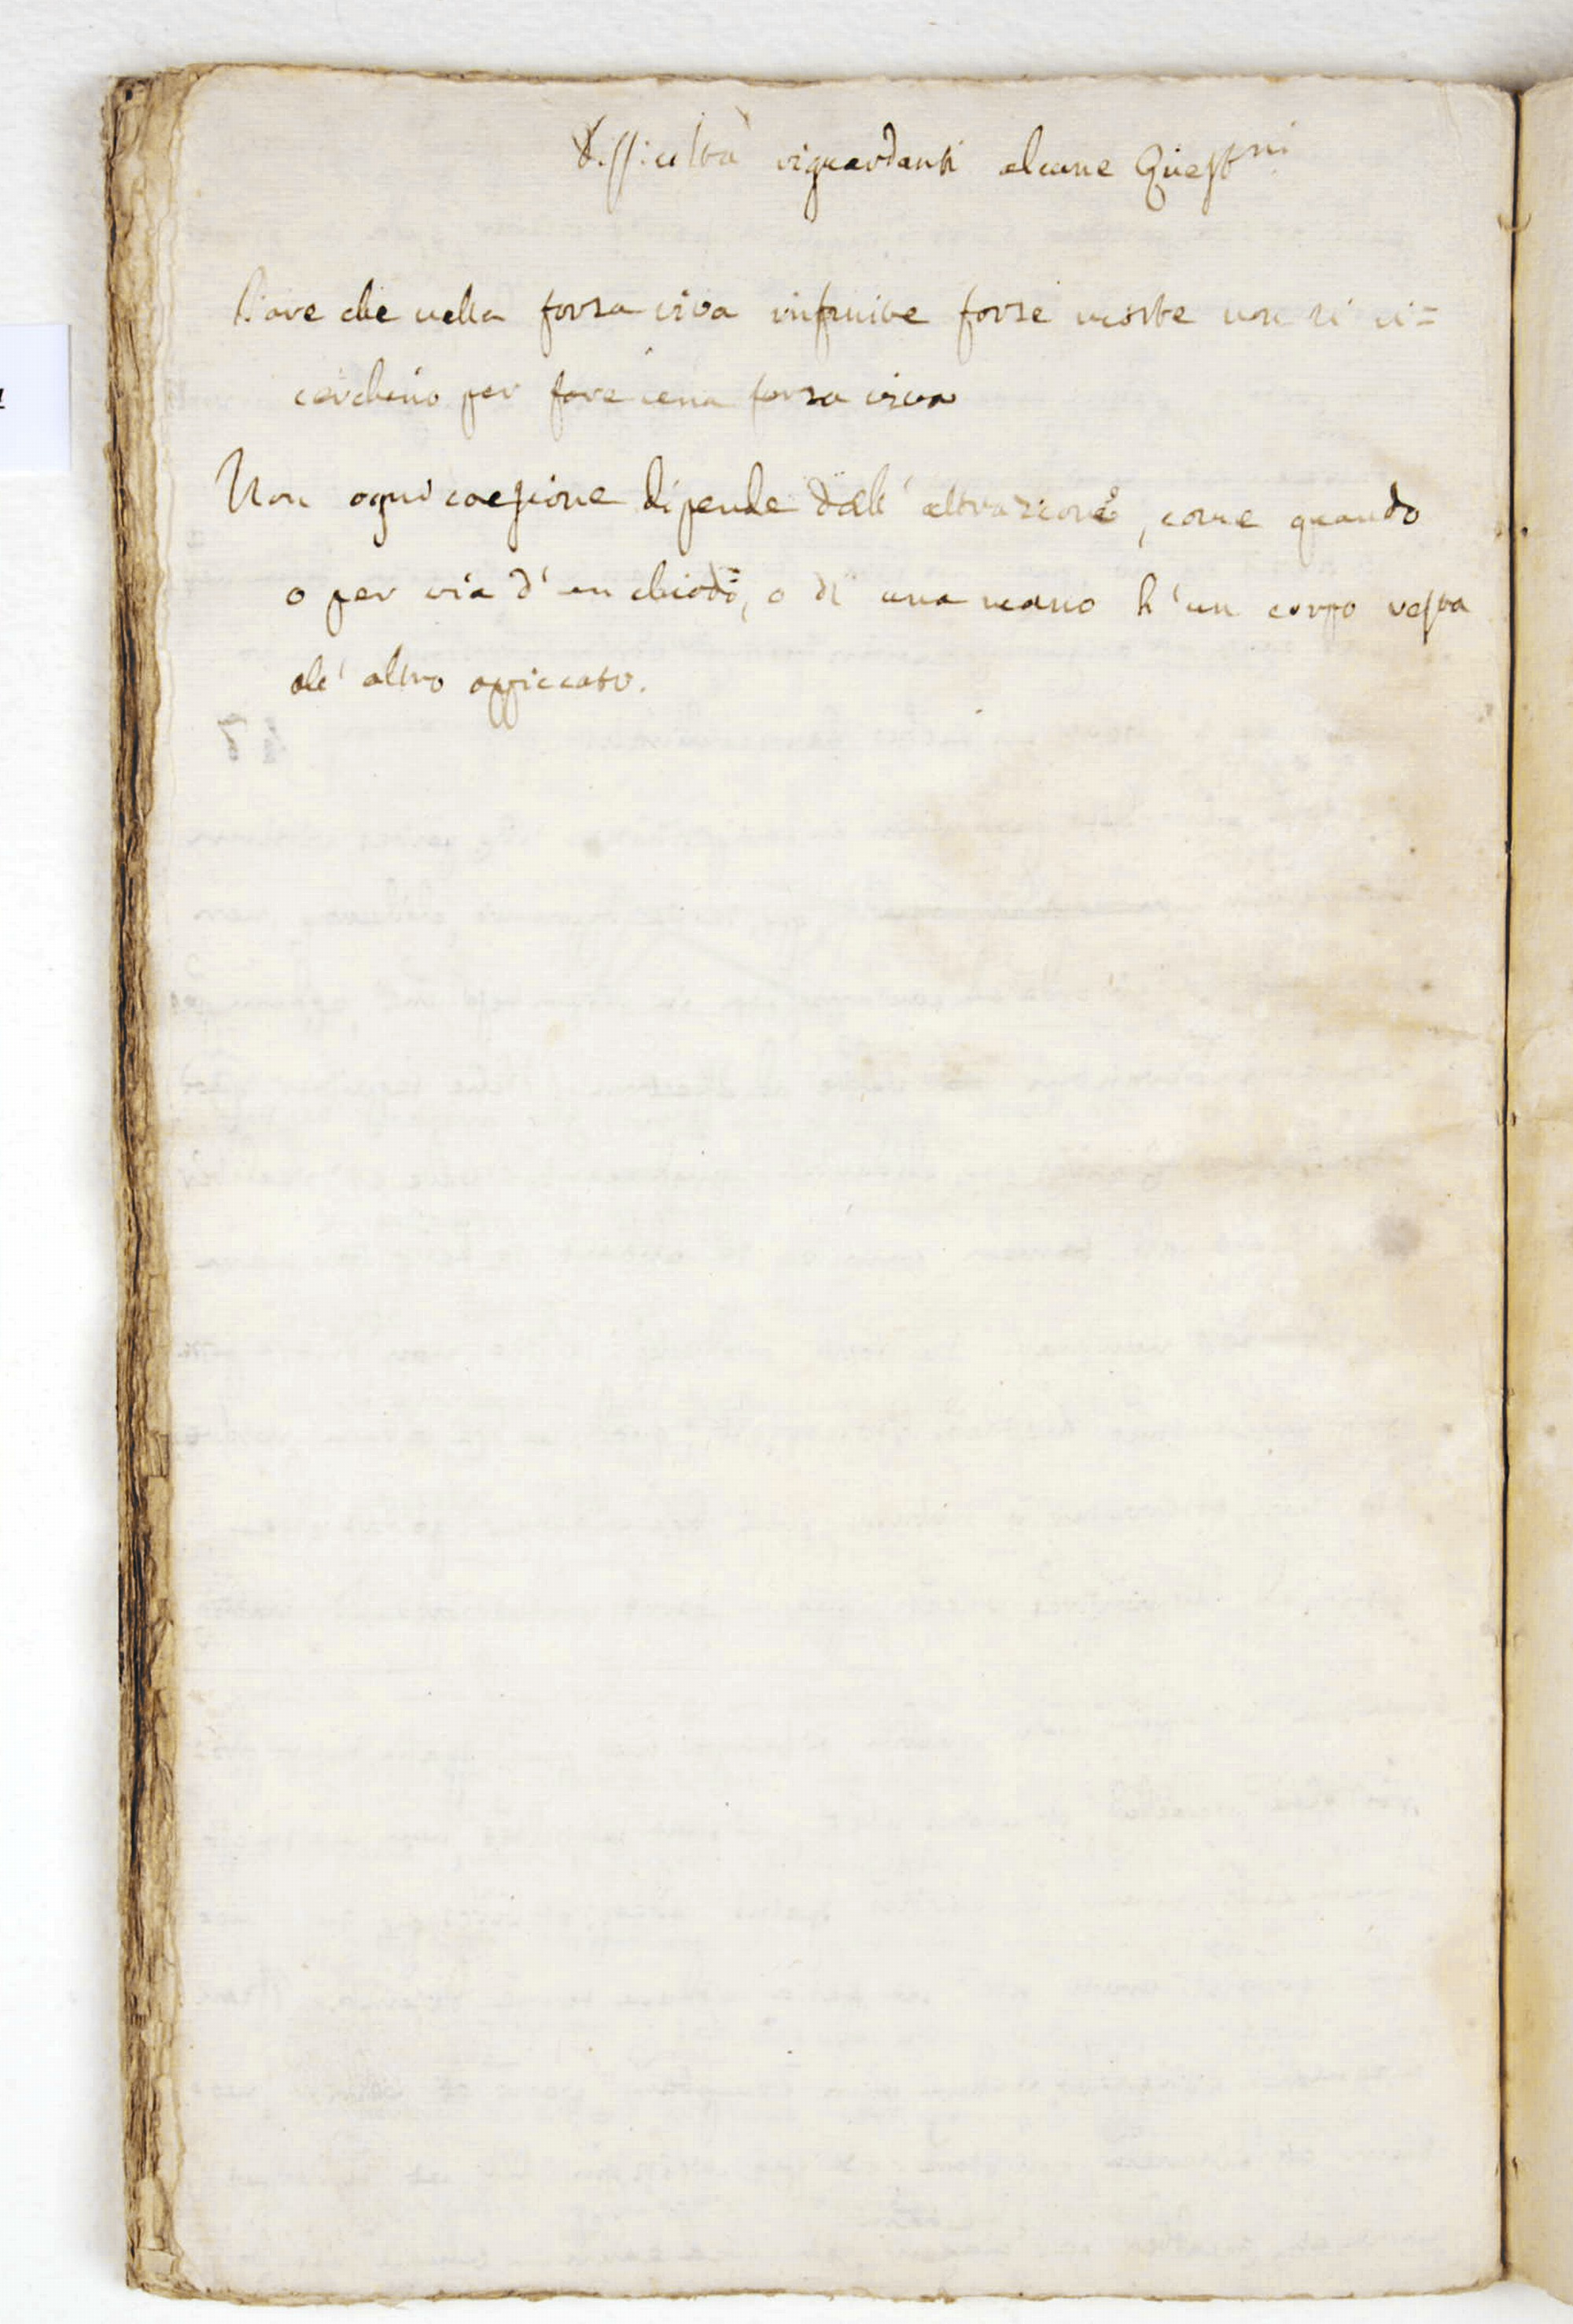 Difficoltà riguardanti alcune Questni
Pare che nella forza viva infinite forze morte non si ri=
cerchino per fare una forza viva
Non ogni coesione dipende dall' attrazione, come quando
o per via d' un chiodo, o di una mano l' un corpo resta
all' altro appiccato.